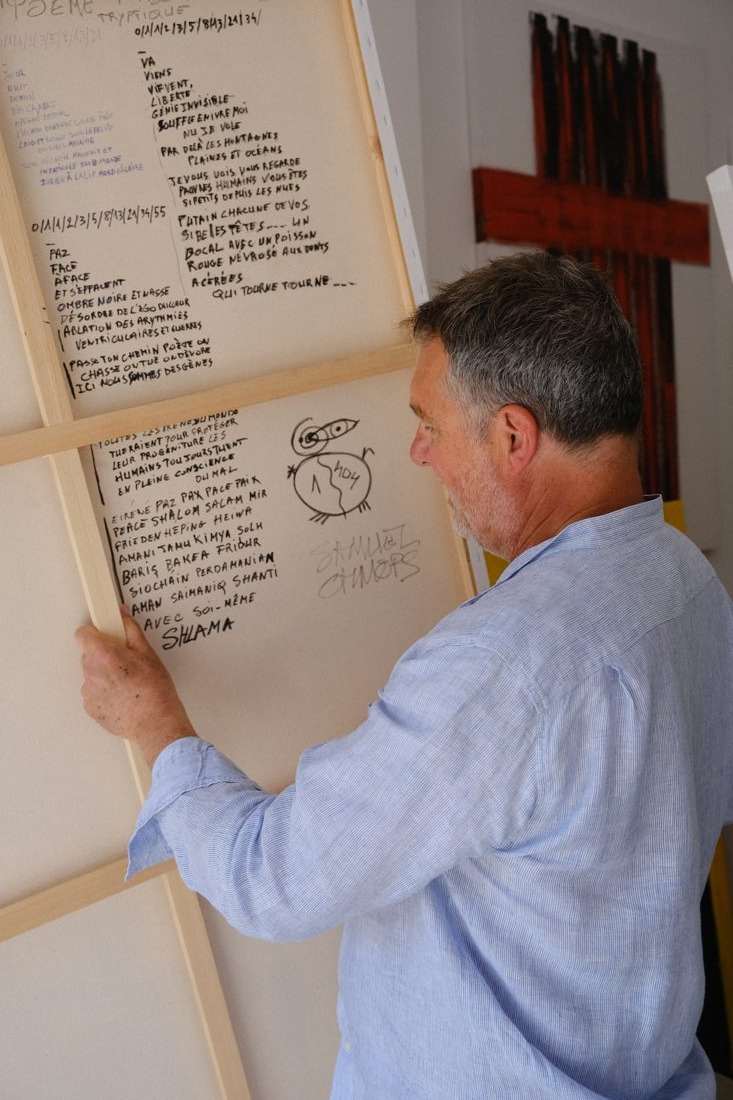 POEME
TRYPTIQUE
0/1/1/2/3/5/8/13/21
JOUR
NUIT
DEMAIN
0/1/1/2/3/5/8/13/21/34/
VA
VIENS
VIREVENT,
LIBERTÉ
GÉNIE INVISIBLE
SOUFFLE ENIVRE MOI
NU JE VOLE
PAR DELÀ LES MONTAGNES
PLAINES ET OCÉANS
JE VOUS VOIS, VOUS REGARDE
PAUVRES HUMAINS VOUS ÊTES
SI PETITS DEPUIS LES NUES
PUTAIN CHACUNE DE VOS
SI BELLES TÊTES.... UN
BOCAL AVEC UN POISSON
ROUGE NÉVROSÉ AUX DENTS
ACÉRÉES
QUI TOURNE TOURNE ---
0/1/1/2/3/5/8/13/21/34/55
PAZ
FACE
À FACE
ET S'EFFACENT
OMBRE NOIRE ET NASSE
DÉSORDRE DE L'EGO D'AILLEUR
ABLATION DES ARYTHMIES
VENTRICULAIRES ET GUERRES
PASSE TON CHEMIN POÈTE ON
CHASSE OU TUE ON DÉVORE
ICI NOUS SOMMES DES GÈNES
TOUTES LES DU MONDE
TUERAIENT POUR PROTÉGER
LEUR PROGÉNITURE LES
HUMAINS TOUJOURS TUENT
EN PLEINE CONSCIENCE
DU MAL
EIRENE PAZ PAX PACE PAIX
PEACE SHALOM SALAM MIR
FRIEDEN HEPING HEIWA
AMANI TAMU KIMYA SOLH
BARIŞ BAKEA FRIÐUR
SIOCHAIN PERDAMANIAN
AMAN SAIMANIQ SHANTI
AVEC SOI-MÊME
SHLAMA
1 404
SAMUEL